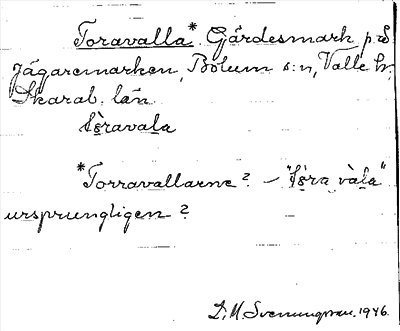 Toravalla* Gärdesmark på
Jägaremarken, Bolum s:n, Valle hr,
Skarab. län.
*Torravallarne? –
ursprungligen?
D. M. Svenungsson. 1946.